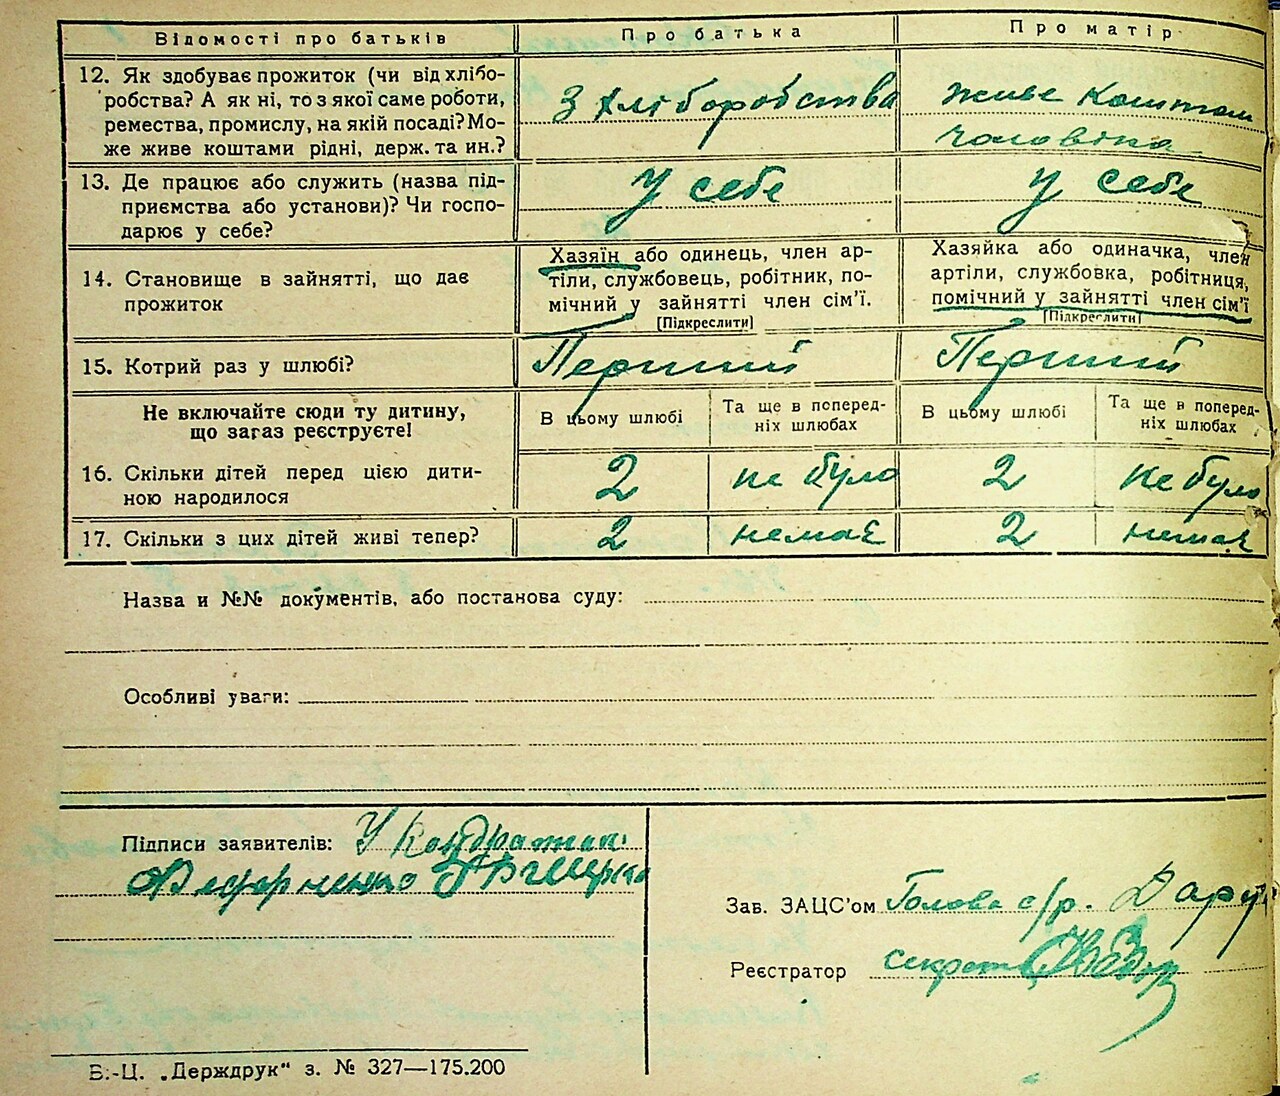 Відомості про батьків Про батька Про матір
12. Як здобуває прожиток (чи від хлібо-
робства? А як ні, то з якої саме роботи,
ремества, промислу, на якій посаді? Мо-
же живе коштами рідні, держ. та ин.?
З хліборобства
живе коштом
чоловіка
13. Де працює або служить (назва під-
приємства або установи)? Чи госпо-
дарює у себе?
У себе
у себе
14. Становище в зайнятті, що дає
прожиток
Хазяїн або одинець, член ар-
тіли, службовець, робітник, по-
мічний у зайнятті член сім'ї.
[Підкреслити]
Хазяйка або одиначка, член
артіли, службовка, робітниця,
помічний у зайнятті член сім'ї
[Підкреслити]
15. Котрий раз у шлюбі? Перший Перший
Не включайте сюди ту дитину,
що загаз реєструєте!
В цьому шлюбі
Та ще в поперед-
ніх шлюбах
В цьому шлюбі
Та ще в поперед-
ніх шлюбах
16. Скільки дітей перед цією дити-
ною народилося
2 не було 2 не було
17. Скільки з цих дітей живі тепер? 2 немає 2 немає
Назва и №№ документів, або постанова суду:
Особливі уваги:
Підписи заявителів:
Зав. ЗАЦС'ом Голова с/р.
Реєстратор секрет
Б.-Ц. „Держдрук“ з. № 327—175.200